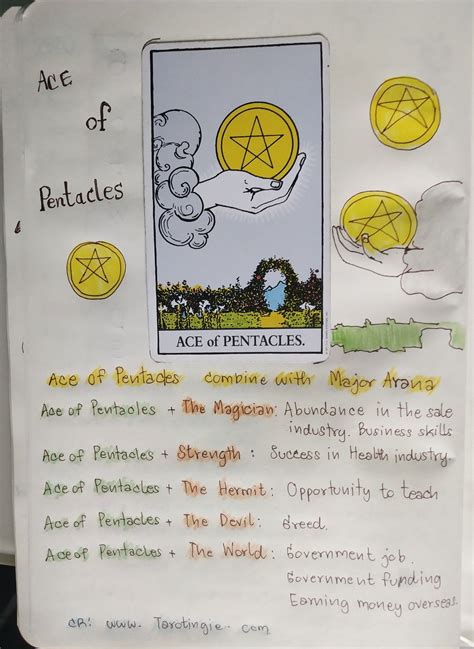 Ace
of
Pentacles
ACE of PENTACLES.
Ace of Pentacles combine with Major Arana
Ace of Pentacles + The Magician: Abundance in the sale
industry. Business skills
Ace of Pentacles + Strength : Success in Health industry.
Ace of Pentacles + The Hermit: Opportunity to teach
Ace of Pentacles + The Devil: Greed.
Ace of Pentacles + The World: Government job.
Government funding
Earning money overseas.
CR: www. Tarotingie. com